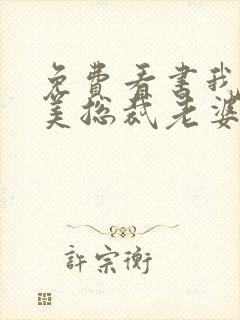 免費看書我
美總裁老婆
許宗衡